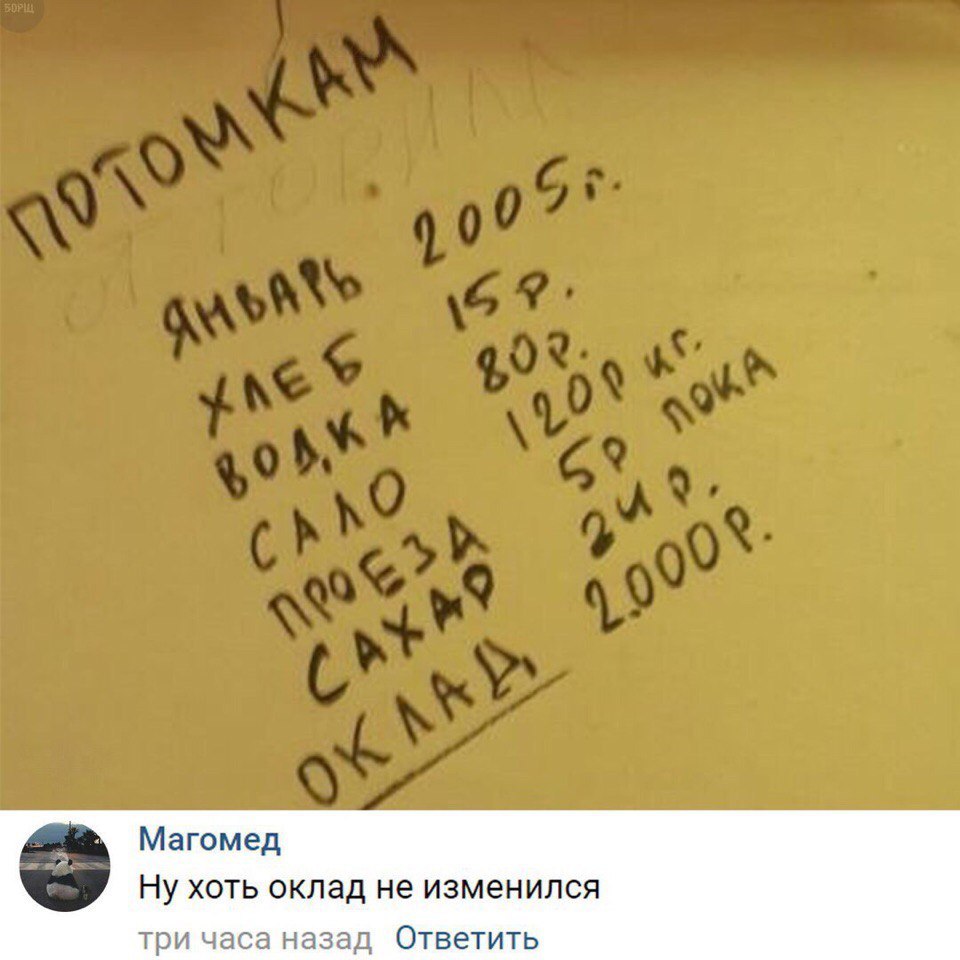 БОРЩ
ПОТОМКАМ
ЯНВАРЬ 2005г.
ХЛЕБ 15р.
ВОДКА 80р.
САЛО 120р кг.
ПРОЕЗД 5р ПОКА
САХАР 24р.
ОКЛАД 2.000р.
Магомед
Ну хоть оклад не изменился
три часа назад Ответить